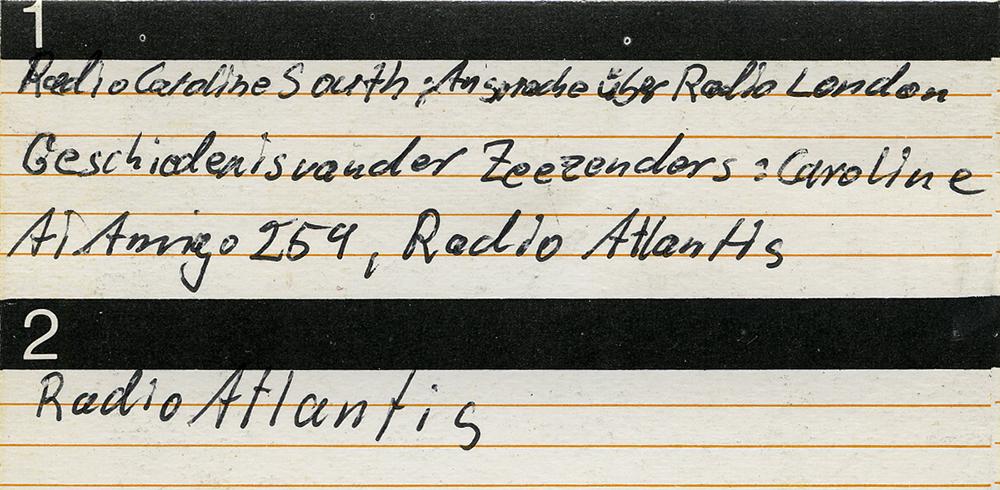 1
Radio Caroline South : Ansprache über Radio London
Geschiedenis van der Zeezenders : Caroline
Mi Amigo 259, Radio Atlantis
2
Radio Atlantis